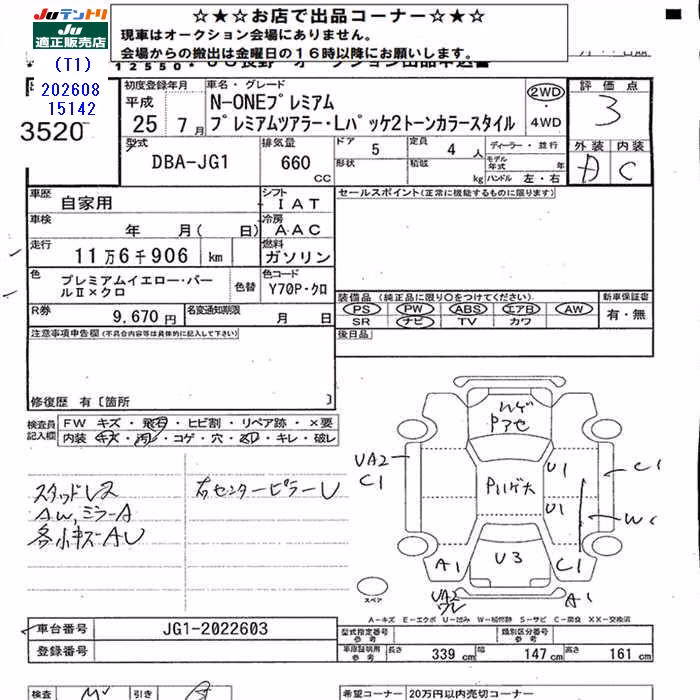 ☆★☆お店で出品コーナー☆★☆
現車はオークション会場にありません。
会場からの搬出は金曜日の16時以降にお願いします。
Juテントリ
JU
適正販売店
(T1)
202608
15142
3520
初度登録年月
平成
25 7月
車名・グレード
N-ONEプレミアム
プレミアムツアラー・Lパッケ2トーンカラースタイル
2WD
・
4WD
評価点
3
型式
DBA-JG1
排気量
660
CC
ドア 5
定員 4 人
形状
積載
kg
ディーラー・並行
モデル年式 年
ハンドル 左・右
外装 内装
D C
車歴
自家用
シフト
IAT
車検
年 月( 日)
冷房
AAC
走行
11万6千906 km
燃料
ガソリン
色
プレミアムイエロー・パールⅡ×クロ
色替
色コード
Y70P・クロ
R券
9,670円
名変通知期限
月 日
セールスポイント(正常に機能するものに限ります)
装備品(純正品に限り○をつけてください)
PS PW ABS エアB AW
SR ナビ TV カワ
新車保証書
有・無
注意事項申告欄(不具合内容等は具体的に記入して下さい)
後日品
修復歴 有[箇所 ]
検査員記入欄
FW キズ・飛石・ヒビ割・リペア跡・×要
内装・キズ・汚れ・コゲ・穴・凹・キレ・破レ
スタッドレス
AW,ミラーA
各小キズ-AU
右センターピラーU
UA2
C1
U1
U1
C1
U3
A1
C1
A1
スペア
A-キズ E-エクボ U-凹み W-補修跡 S-サビ C-腐食 XX-交換済
車台番号
JG1-2022603
登録番号
型式指定番号 参考
類別区分番号 参考
車庫証明用 参考
長さ 339 cm
幅 147 cm
高さ 161 cm
検査
引き
希望コーナー
20万円以内売切コーナー